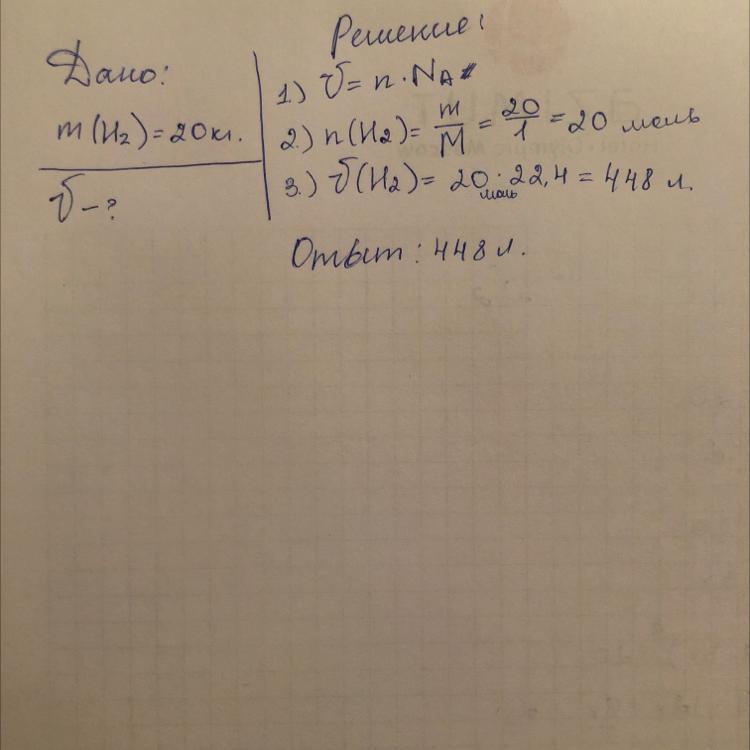 Дано:
m(H₂)=20кг.
V-?
Решение:
1.) V=n·Nᴀ
2.) n(H₂)= m/M = 20/1 =20 моль
3.) V(H₂)= 20 моль·22,4=448 л.
Ответ: 448 л.